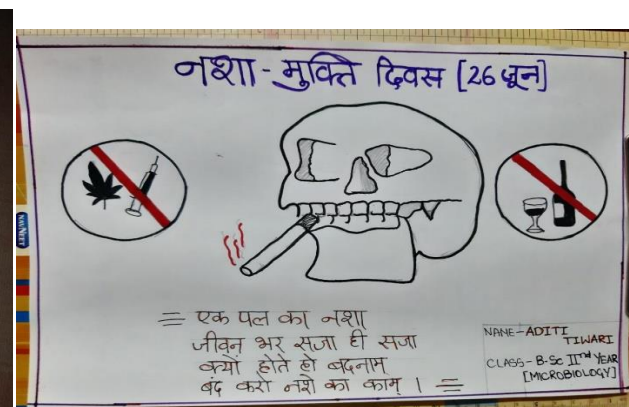 नशा-मुक्ति दिवस [26 जून]
NAVNEET
= एक पल का नशा
जीवन भर सजा ही सजा
क्यों होते हो बदनाम
बंद करो नशे का काम । =
NAME-ADITI
TIWARI
CLASS- B-Sc IInd YEAR
[MICROBIOLOGY]